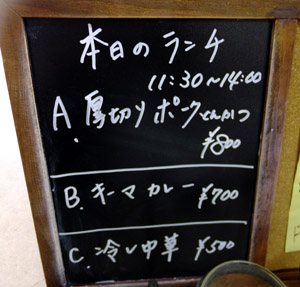 本日のランチ
11:30〜14:00
A.厚切りポークとんかつ
¥800
B.キーマカレー ¥700
C.冷し中華 ¥500